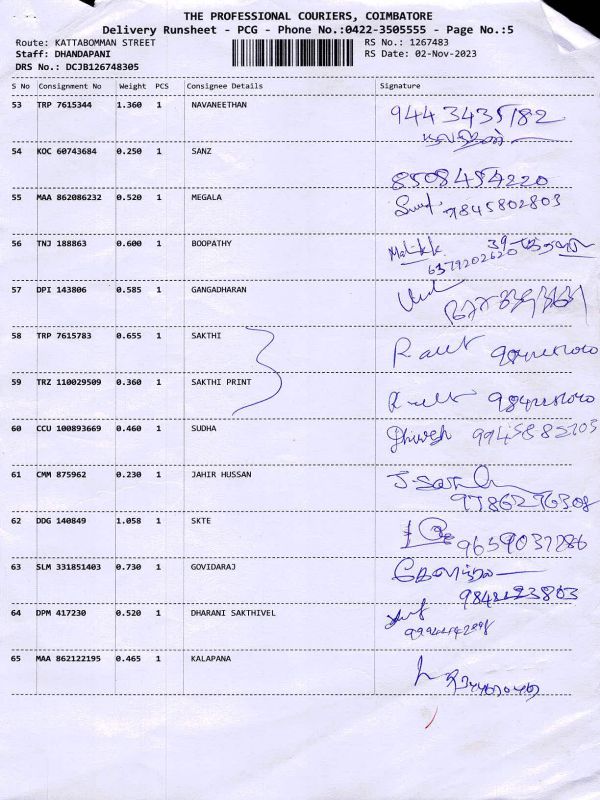 THE PROFESSIONAL COURIERS, COIMBATORE
Delivery Runsheet - PCG - Phone No.:0422-3505555 - Page No.:5
Route: KATTABOMMAN STREET
RS No.: 1267483
Staff: DHANDAPANI
RS Date: 02-Nov-2023
DRS No.: DCJB126748305
S No Consignment No Weight PCS Consignee Details Signature
53 TRP 7615344 1.360 1 NAVANEETHAN 9443435182
54 KOC 60743684 0.250 1 SANZ
8508454220
55 MAA 862086232 0.520 1 MEGALA 9845802803
56 TNJ 188863 0.600 1 BOOPATHY
6379202620
57 DPI 143806 0.585 1 GANGADHARAN
58 TRP 7615783 0.655 1 SAKTHI
59 TRZ 110029509 0.360 1 SAKTHI PRINT
60 CCU 100893669 0.460 1 SUDHA
61 CMM 875962 0.230 1 JAHIR HUSSAN
9786276308
62 DDG 140849 1.058 1 SKTE
9659037286
63 SLM 331851403 0.730 1 GOVIDARAJ
64 DPM 417230 0.520 1 DHARANI SAKTHIVEL
65 MAA 862122195 0.465 1 KALAPANA